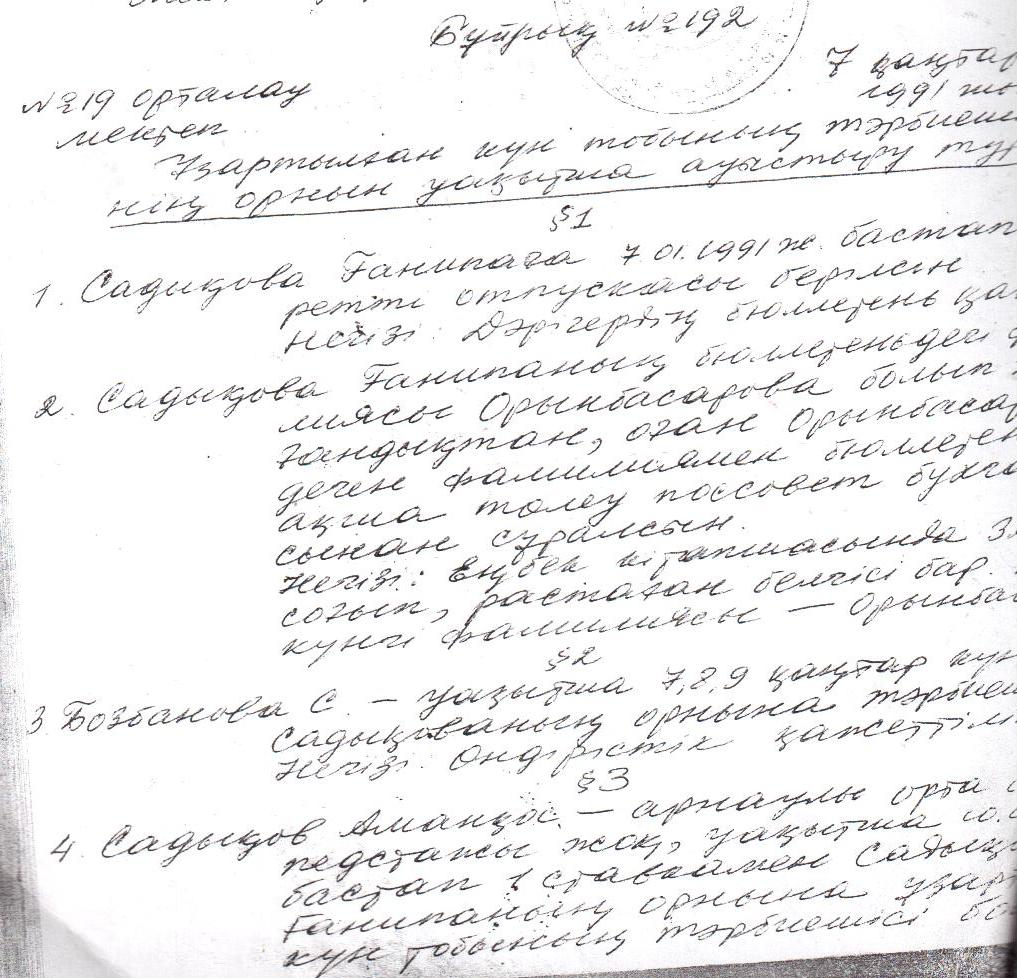 Бұйрық №192
7 қаңтар
№19 орталау
1991 жы
мектеп
Ұзартылған күн тобының тәрбиеші
нің орнын уақытша ауыстыру тур
§1
1. Садықова Ғанипаға 7.01.1991 ж. бастап
ретті отпускасы берілсін
Негізі: Дәрігердің бюллетень қағ
2. Садықова Ғанипаның бюллетеньдегі ф
лиясы Орынбасарова болып
ғандықтан, оған Орынбасар
деген фамилиямен бюллетен
ақша төлеу поссовет бухга
сынан сұралсын.
Негізі: Еңбек кітапшасында
соғып, растаған белгісі бар.
күнгі фамилиясы – Орынба
§2
3. Бозбанова С. – уақытша 7,8,9 қаңтар күн
Садықованың орнына тәрбиеш
Негізі: Өндірістік қажеттілі
§3
4. Садықов Аманқос. – арнаулы орта
педстажы жоқ, уақытша 10.
бастап 1 ставкамен Садық
Ғанипаның орнына ұзарт
күн тобының тәрбиешісі бо